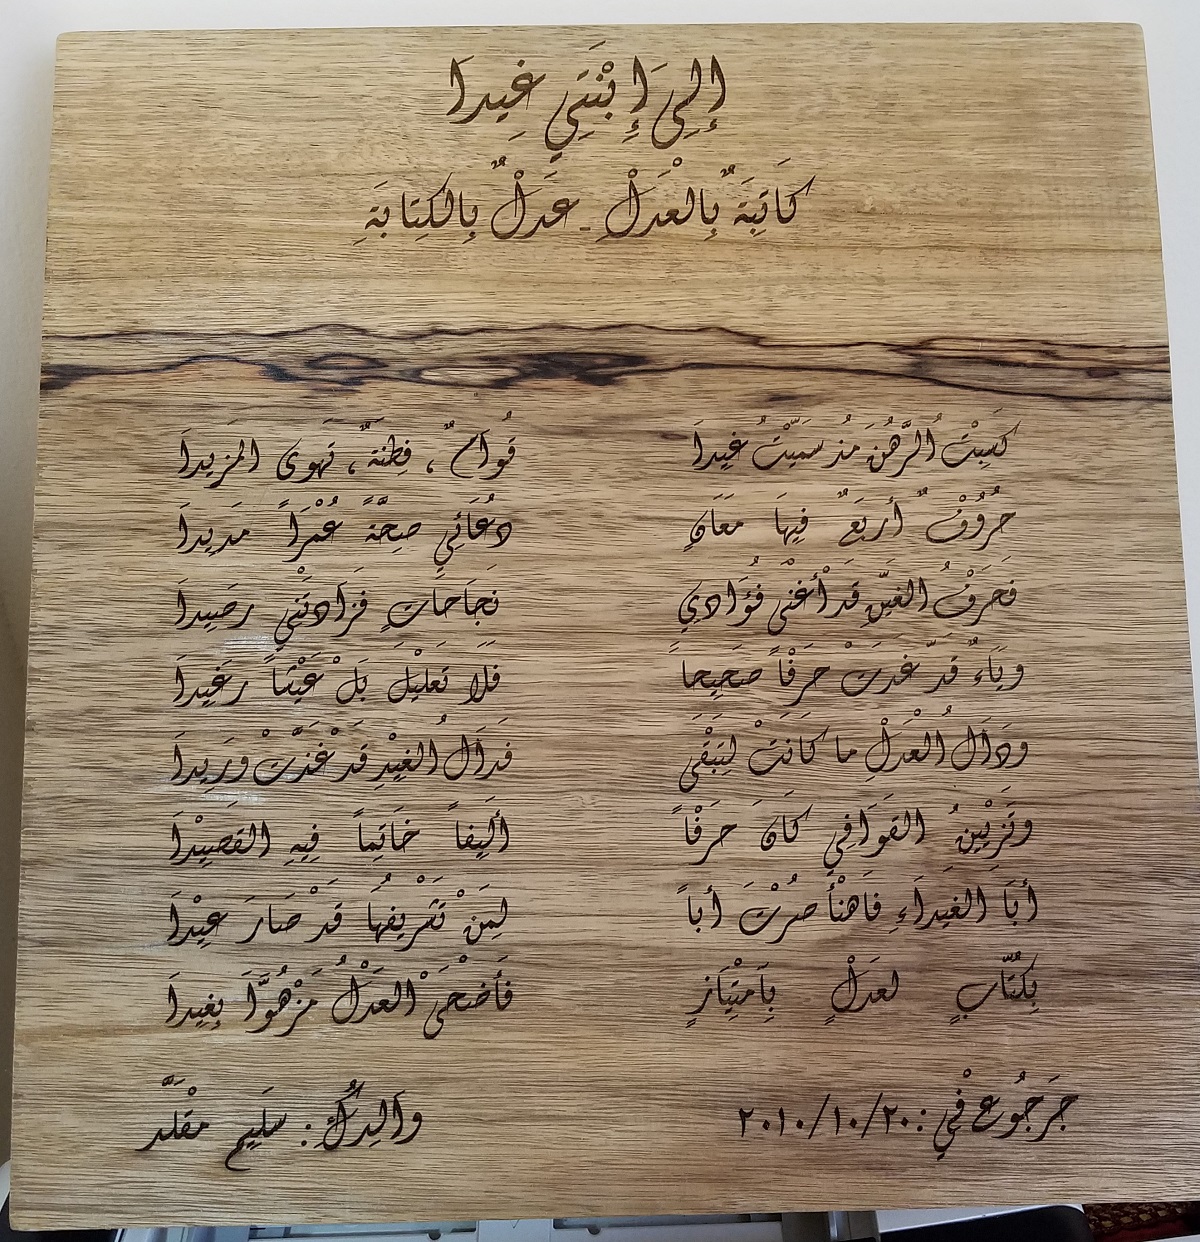 إِلَى إِبْنَتِي غِيدَا
كَاتِبَةٌ بِالْعَدْلِ - عَدْلٌ بِالكِتَابَةِ
كَسِبْتُ الرَّهْنَ مُذ سَمَّيْتُ غِيدَا قُوَامٌ ، فِطْنَةٌ ، تَهوى المَزيدَا
حُرُوْفٌ أَربَعٌ فِيهَا مَعَانٍ دُعَائِي صِحَّةً عُمْرَاً مَدِيدَا
فَحَرْفُ الغَيْنِ قَدْ أَغْنَى فُؤَادِي نَجَاحَاتٍ فَزَادَتْنِي رصَيِدَا
ويَاءٌ قَدْ غَدَتْ حَرْفَاً صَحَيِحاً فَلَا تَعلِيْلَ بَلْ عَيْشَاً رَغيِدَا
ودَالُ العَدْلِ ما كَانَتْ لِتَبْقَى فَدَالُ الغِيْدِ قَدْ غَذَّتْ وَرِيدَا
وتَزيِيْنُ القَوَافِي كَانَ حَرْفَاً أَلِيفاً خَاتِماً فِيهِ القَصِيْدَا
أَبَا الغيِدَاءِ فَاهْنَأْ صُرْتَ أَباً لِمَنْ تَشْرِيفُهَا قَدْ صَارَ عِيْدَا
بِكُتَّابٍ لعَدْلٍ بِامَتِيَازٍ فَأَضْحَى العَدْلُ مَزْهُوَّاً بِغِيدَا
جَرجُوع فْي : ٢٠/١٠/٢٠١٠ والِدُكِ : سَليِم مقْلَّد